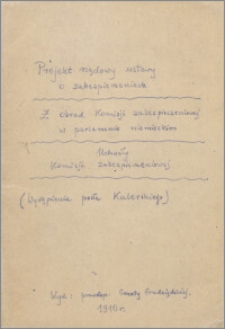 Projekt rządowy ustawy
o zabezpieczeniu
Z obrad Komisji zabezpieczeniowej
w parlamencie niemieckim
Uchwały
Komisji zabezpieczeniowej
(Wystąpienie posła Kulerskiego)
Wyd: Gazety Grudziądzkiej,
1910 r.